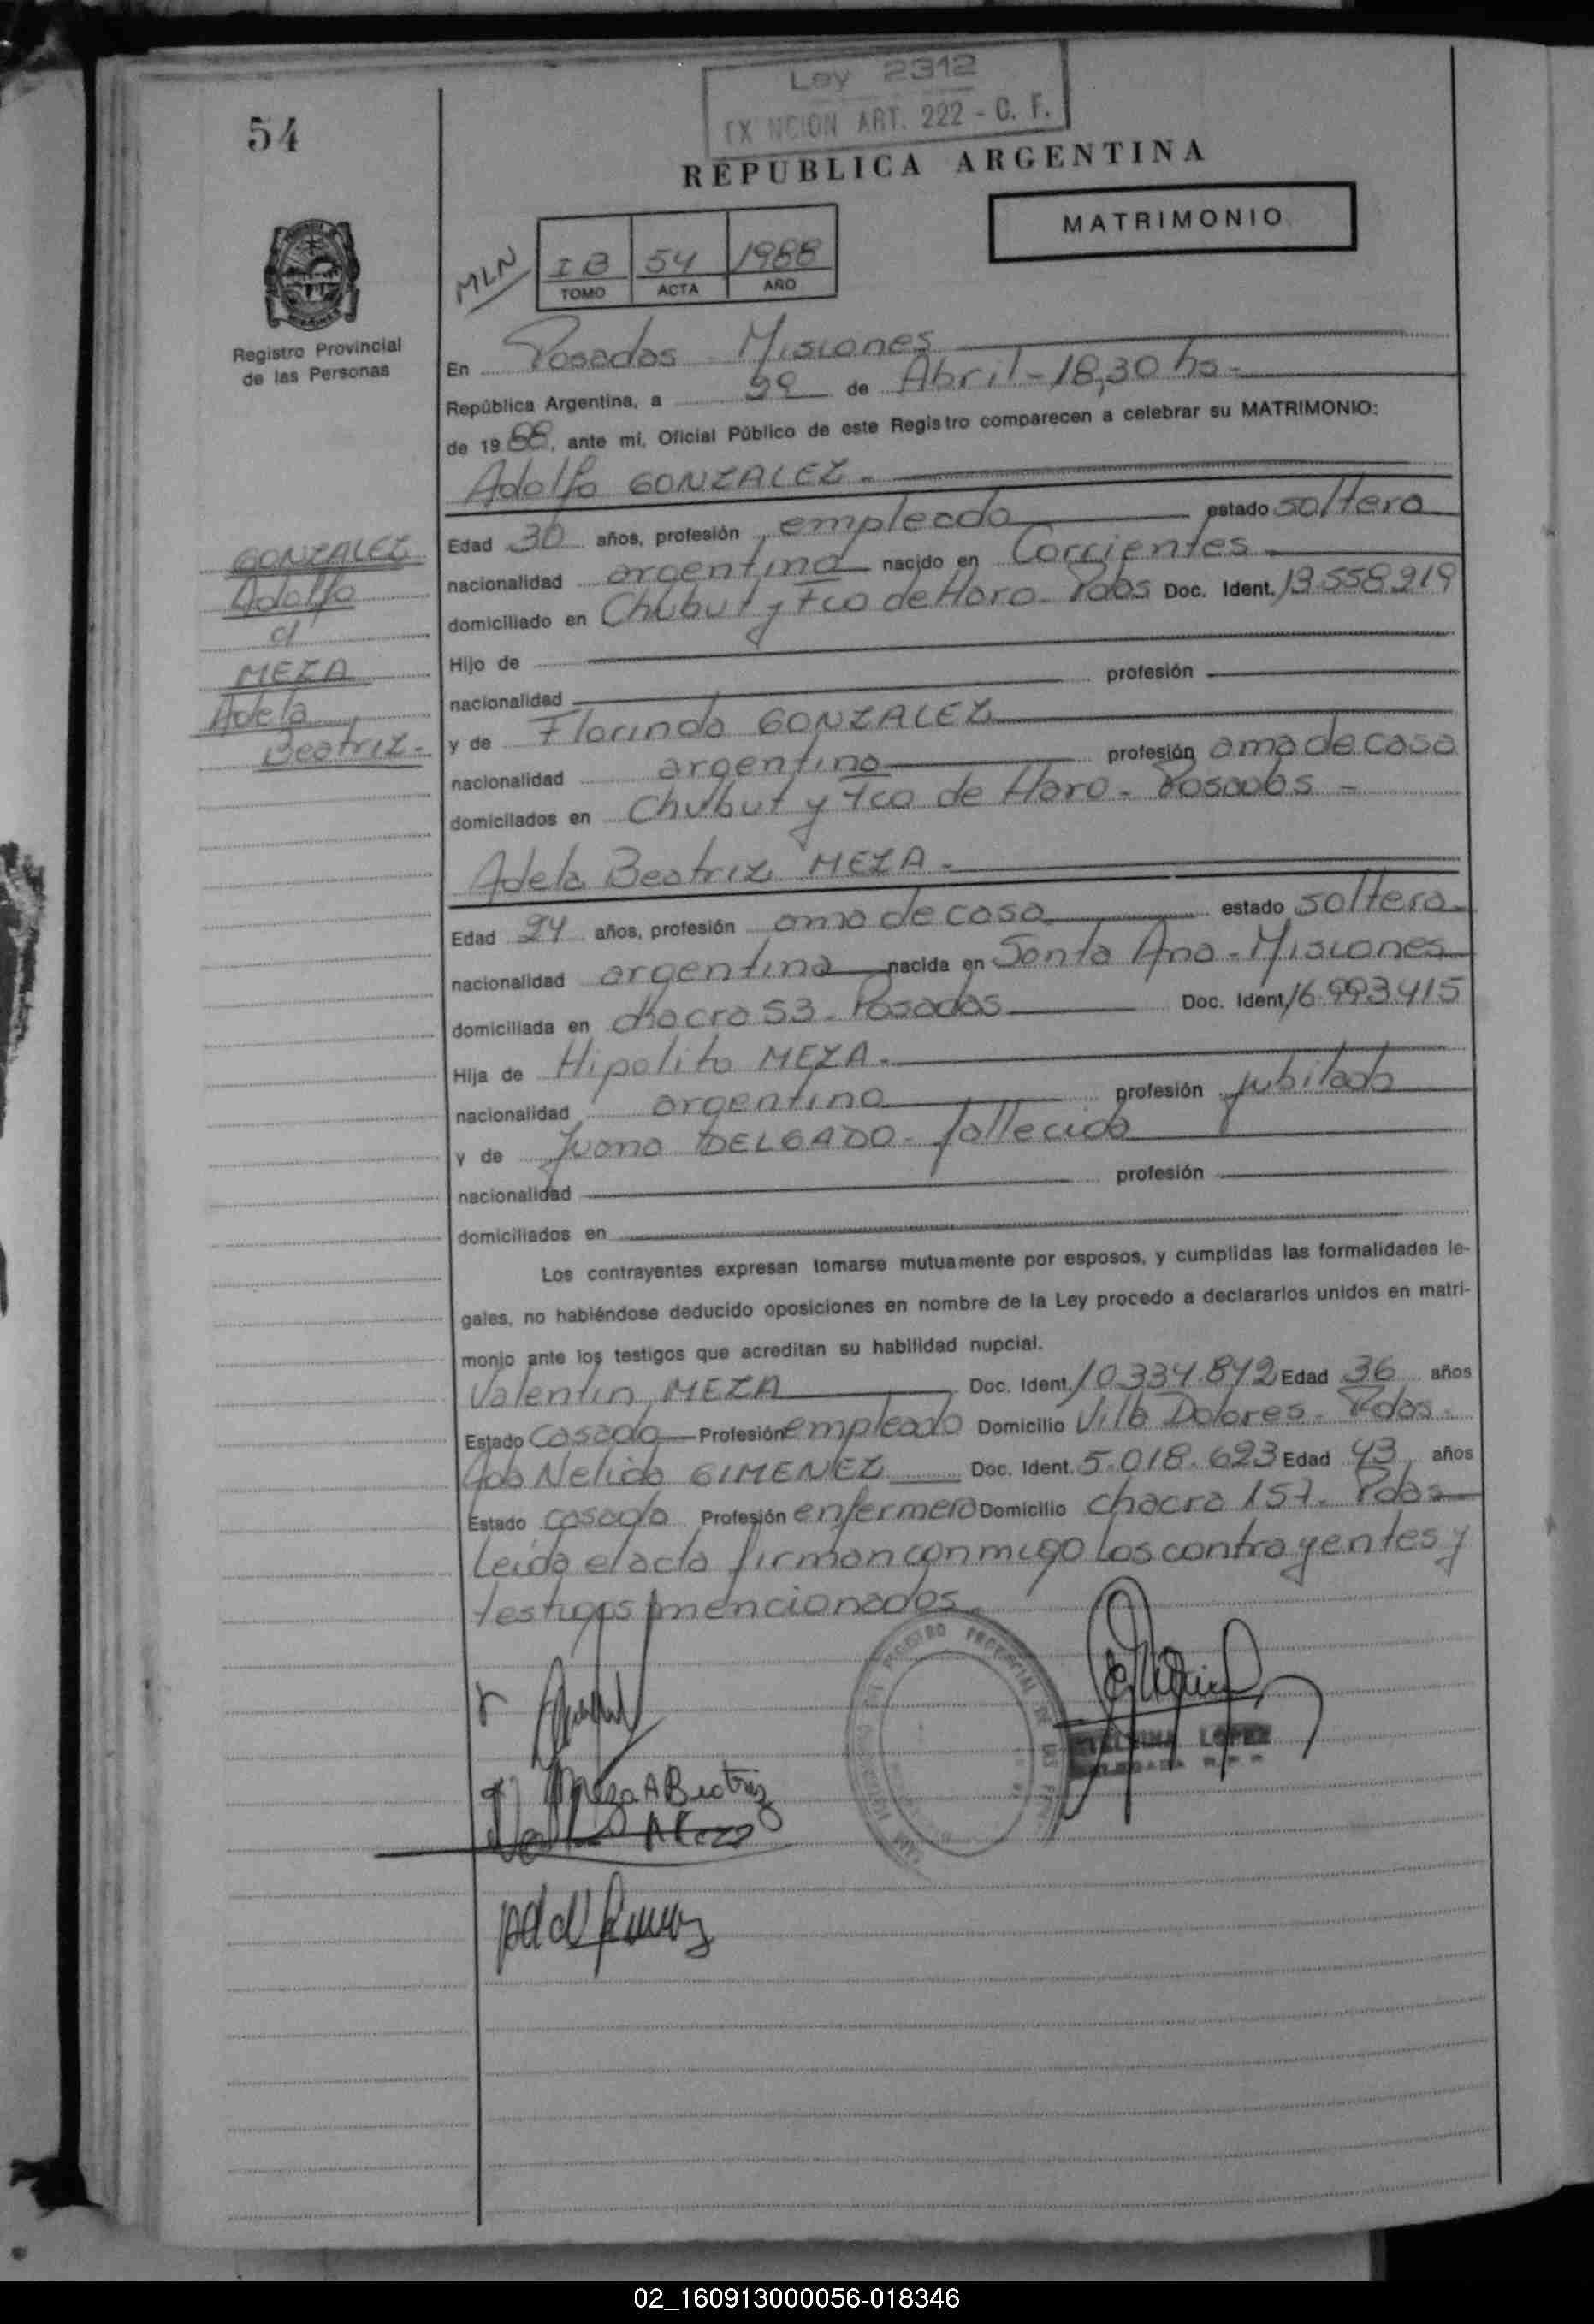 Ley 2312
EX NCION ART. 222 - C. F.
54
REPUBLICA ARGENTINA
MATRIMONIO
MLN
I B 54 1988
TOMO ACTA AÑO
Registro Provincial
de las Personas
En Posadas - Misiones
República Argentina, a de Abril - 18,30 hs -
de 1988, ante mi, Oficial Público de este Registro comparecen a celebrar su MATRIMONIO:
Adolfo GONZALEZ -
GONZALEZ
Adolfo
MEZA
Adela
Beatriz -
Edad 30 años, profesión empleado estado soltero
nacionalidad argentina nacido en Corrientes
domiciliado en Chubut y Fco de Haro - Pdas Doc. Ident. 13.558.919
Hijo de
nacionalidad profesión
y de Florinda GONZALEZ
nacionalidad argentina profesión ama de casa
domiciliados en Chubut y Fco de Haro - Posadas -
Adela Beatriz MEZA -
Edad 24 años, profesión ama de casa estado soltera -
nacionalidad argentina nacida en Santa Ana - Misiones
domiciliada en chacra 53 - Posadas Doc. Ident. 16.993.415
Hija de Hipolito MEZA -
nacionalidad argentina profesión jubilado
y de Juana DELGADO - fallecida
nacionalidad profesión
domiciliados en
Los contrayentes expresan tomarse mutuamente por esposos, y cumplidas las formalidades le-
gales, no habiéndose deducido oposiciones en nombre de la Ley procedo a declararlos unidos en matri-
monio ante los testigos que acreditan su habilidad nupcial.
Valentin MEZA Doc. Ident. 10.334.842 Edad 36 años
Estado Casado Profesión empleado Domicilio Villa Dolores - Pdas -
Ada Nelida GIMENEZ Doc. Ident. 5.018.623 Edad 43 años
Estado casada Profesión enfermera Domicilio chacra 157 - Pdas
Leida el acta firman conmigo los contrayentes y
testigos mencionados
Meza A Beatriz
LOPEZ
02_160913000056-018346